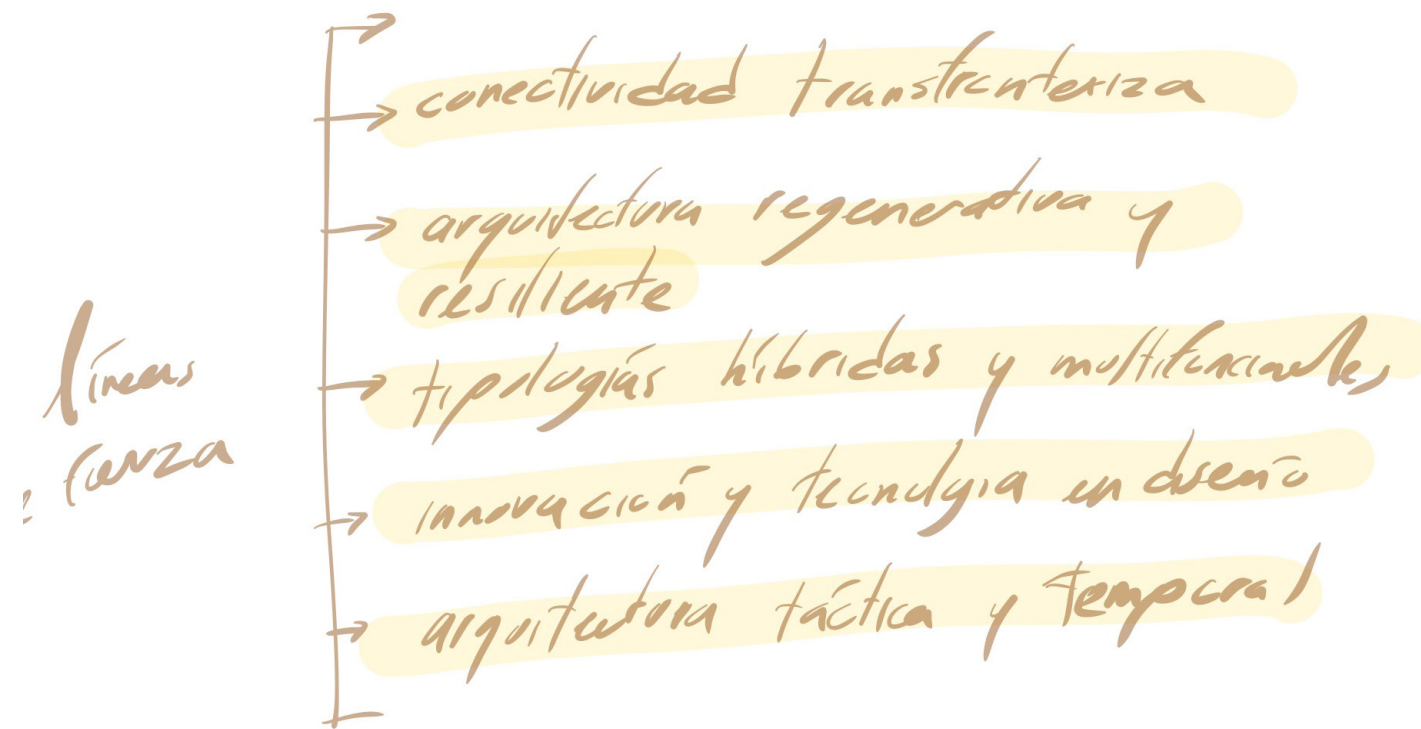 conectividad transfronteriza
arquitectura regenerativa y
resiliente
líneas
tipologías híbridas y multifuncionales
fuerza
innovación y tecnología en diseño
arquitectura táctica y temporal